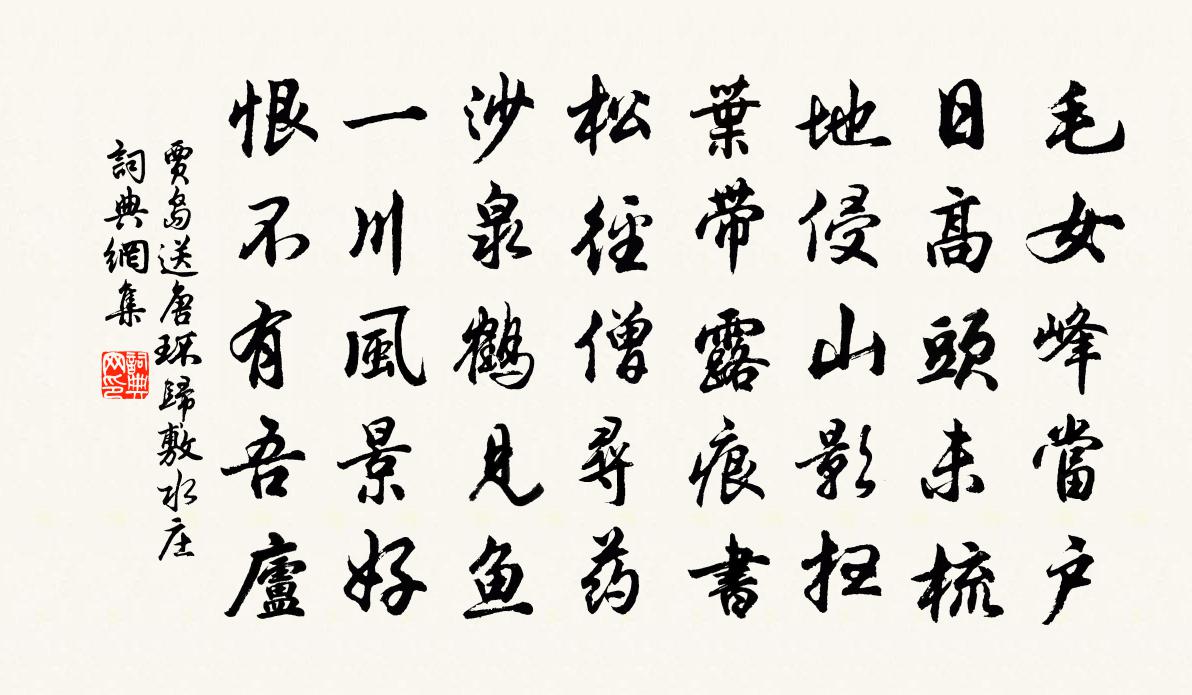 毛女峰當户
日高頭未梳
地侵山影扫
葉帶露痕書
松徑僧尋药
沙泉鶴見鱼
一川風景好
恨不有吾廬
賈島送唐环歸敷水庄
詞典網集
詞典网印